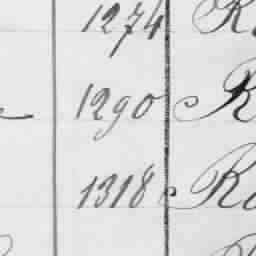 1274 R
1290 R
1318 Ro